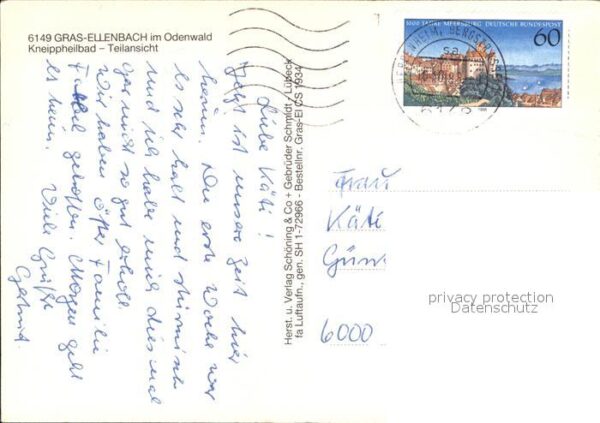 6149 GRAS-ELLENBACH im Odenwald
Kneippheilbad – Teilansicht
1000 JAHRE MEERSBURG DEUTSCHE BUNDESPOST
60
Liebe Käti!
Jetzt ist unsere Zeit hier
herum. Die erste Woche war
es sehr kalt und stürmisch
und ich habe mich diesmal
gar nicht so gut erholt.
Wir haben öfter Familie
getroffen. Morgen geht
es heim. Viele Grüße
Herst. u. Verlag Schöning & Co + Gebrüder Schmidt, Lübeck
fa Luftaufn., gen. SH 1-72966 - Bestellnr. Gras-El CS 1934
Frau
Käti
Gün
6000
privacy protection
Datenschutz